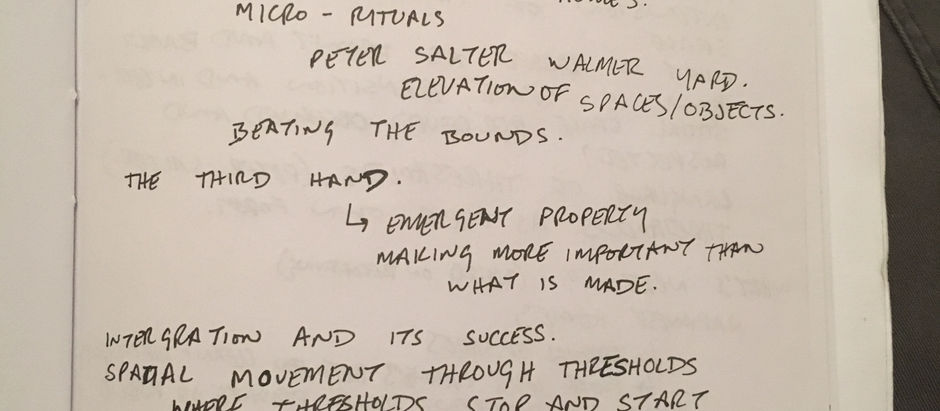 MICRO - RITUALS
PETER SALTER WALMER YARD.
ELEVATION OF SPACES/OBJECTS.
BEATING THE BOUNDS.
THE THIRD HAND.
↳ EMERGENT PROPERTY
MAKING MORE IMPORTANT THAN
WHAT IS MADE.
INTERGRATION AND ITS SUCCESS.
SPATIAL MOVEMENT THROUGH THRESHOLDS
WHERE THRESHOLDS STOP AND START